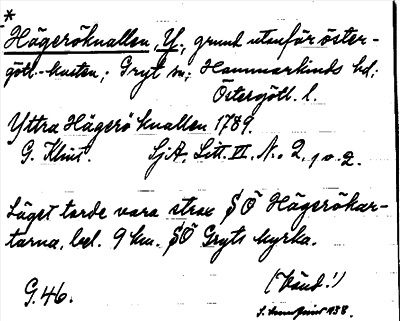 *
Hägeröknallen, Y., grund utanför öster-
götl.-kusten; Gryt sn; Hammarkinds hd;
Östergötl. l.
Yttra Hägerö knallen 1789.
G. Klint. SjA. Litt. VI, No 2, 1 o. 2.
Läget torde vara strax SÖ Hägerökar-
tarna, bel. 9 km. SÖ Gryts kyrka.
G. 46. (Vänd!)